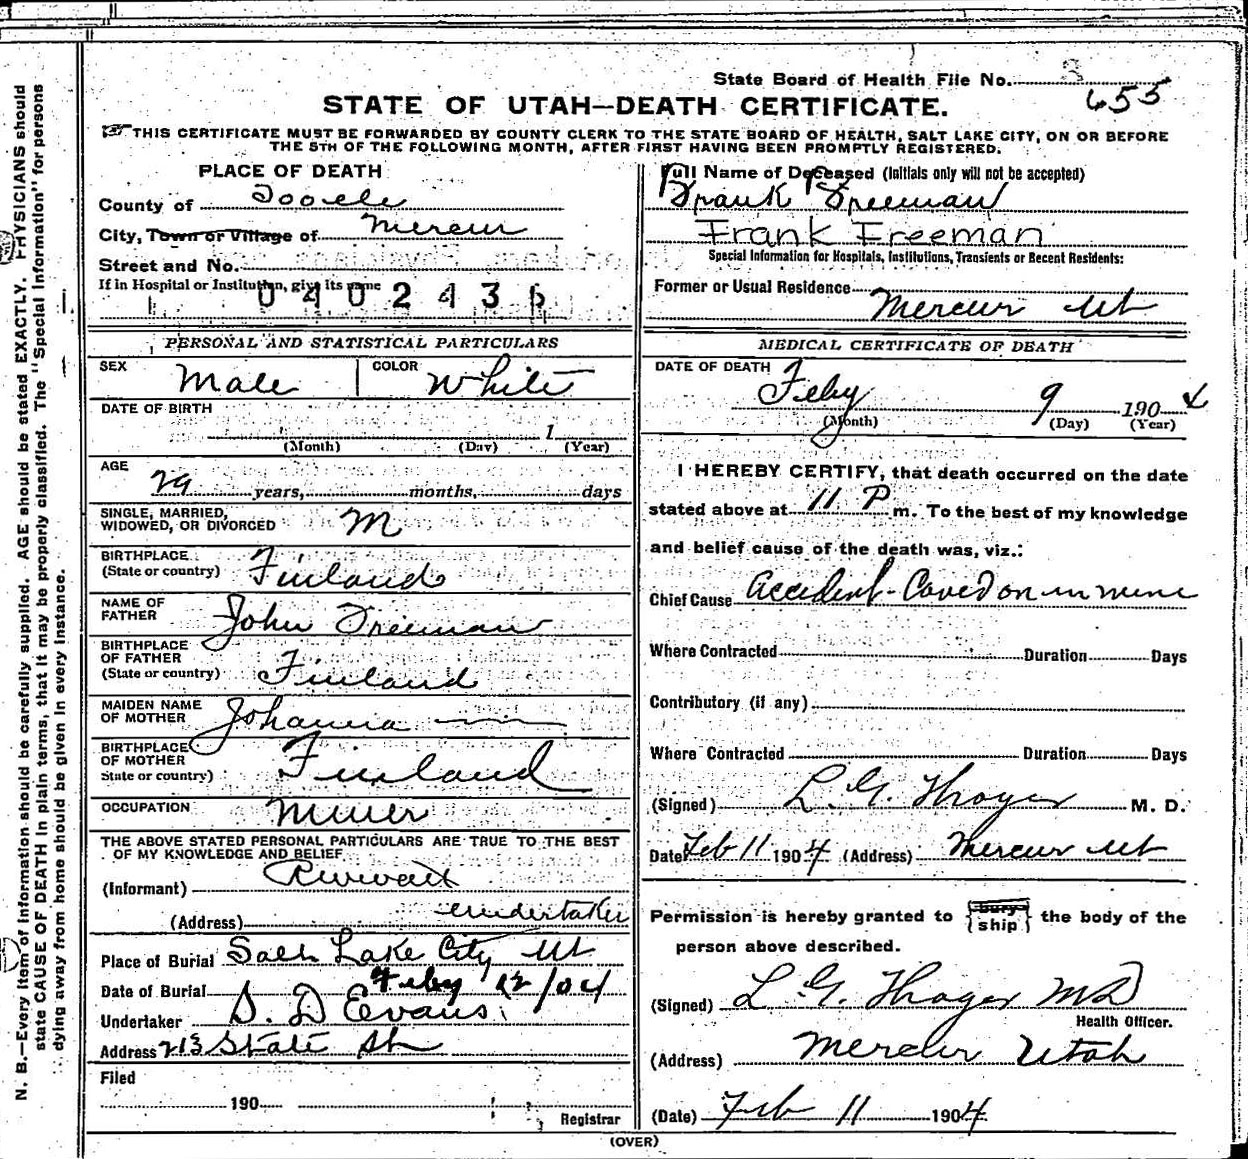 State Board of Health File No. 3
655
STATE OF UTAH—DEATH CERTIFICATE.
THIS CERTIFICATE MUST BE FORWARDED BY COUNTY CLERK TO THE STATE BOARD OF HEALTH, SALT LAKE CITY, ON OR BEFORE
THE 5TH OF THE FOLLOWING MONTH, AFTER FIRST HAVING BEEN PROMPTLY REGISTERED.
PLACE OF DEATH
County of Tooele
City, Town or Village of Mercur
Street and No.
If in Hospital or Institution, give its name
0402436
Full Name of Deceased (Initials only will not be accepted)
Frank Freeman
Frank Freeman
Special Information for Hospitals, Institutions, Transients or Recent Residents:
Former or Usual Residence
Mercur Ut
PERSONAL AND STATISTICAL PARTICULARS
SEX Male COLOR White
DATE OF BIRTH
1
(Month) (Day) (Year)
AGE
29 years, months, days
SINGLE, MARRIED,
WIDOWED, OR DIVORCED M
BIRTHPLACE
(State or country) Finland
NAME OF
FATHER John Freeman
BIRTHPLACE
OF FATHER
(State or country) Finland
MAIDEN NAME
OF MOTHER Johanna
BIRTHPLACE
OF MOTHER
State or country) Finland
OCCUPATION Miner
THE ABOVE STATED PERSONAL PARTICULARS ARE TRUE TO THE BEST
OF MY KNOWLEDGE AND BELIEF
(Informant)
(Address) undertaker
Place of Burial Salt Lake City Ut
Date of Burial Feby 12/04
Undertaker S. D Evans
Address 213 State St
Filed
190
Registrar
MEDICAL CERTIFICATE OF DEATH
DATE OF DEATH
Feby 9 1904
(Month) (Day) (Year)
I HEREBY CERTIFY, that death occurred on the date
stated above at 11 P m. To the best of my knowledge
and belief cause of the death was, viz.:
Chief Cause Accident - Caved on in mine
Where Contracted Duration Days
Contributory (if any)
Where Contracted Duration Days
(Signed) L. G. Thayer M. D.
Date Feb 11 1904 (Address) Mercur Ut
Permission is hereby granted to {bury
ship} the body of the
person above described.
(Signed) L. G. Thayer MD
Health Officer.
(Address) Mercur Utah
(Date) Feb 11 1904
(OVER)
N. B.—Every item of information should be carefully supplied. AGE should be stated EXACTLY. PHYSICIANS should
state CAUSE OF DEATH in plain terms, that it may be properly classified. The "Special Information" for persons
dying away from home should be given in every instance.